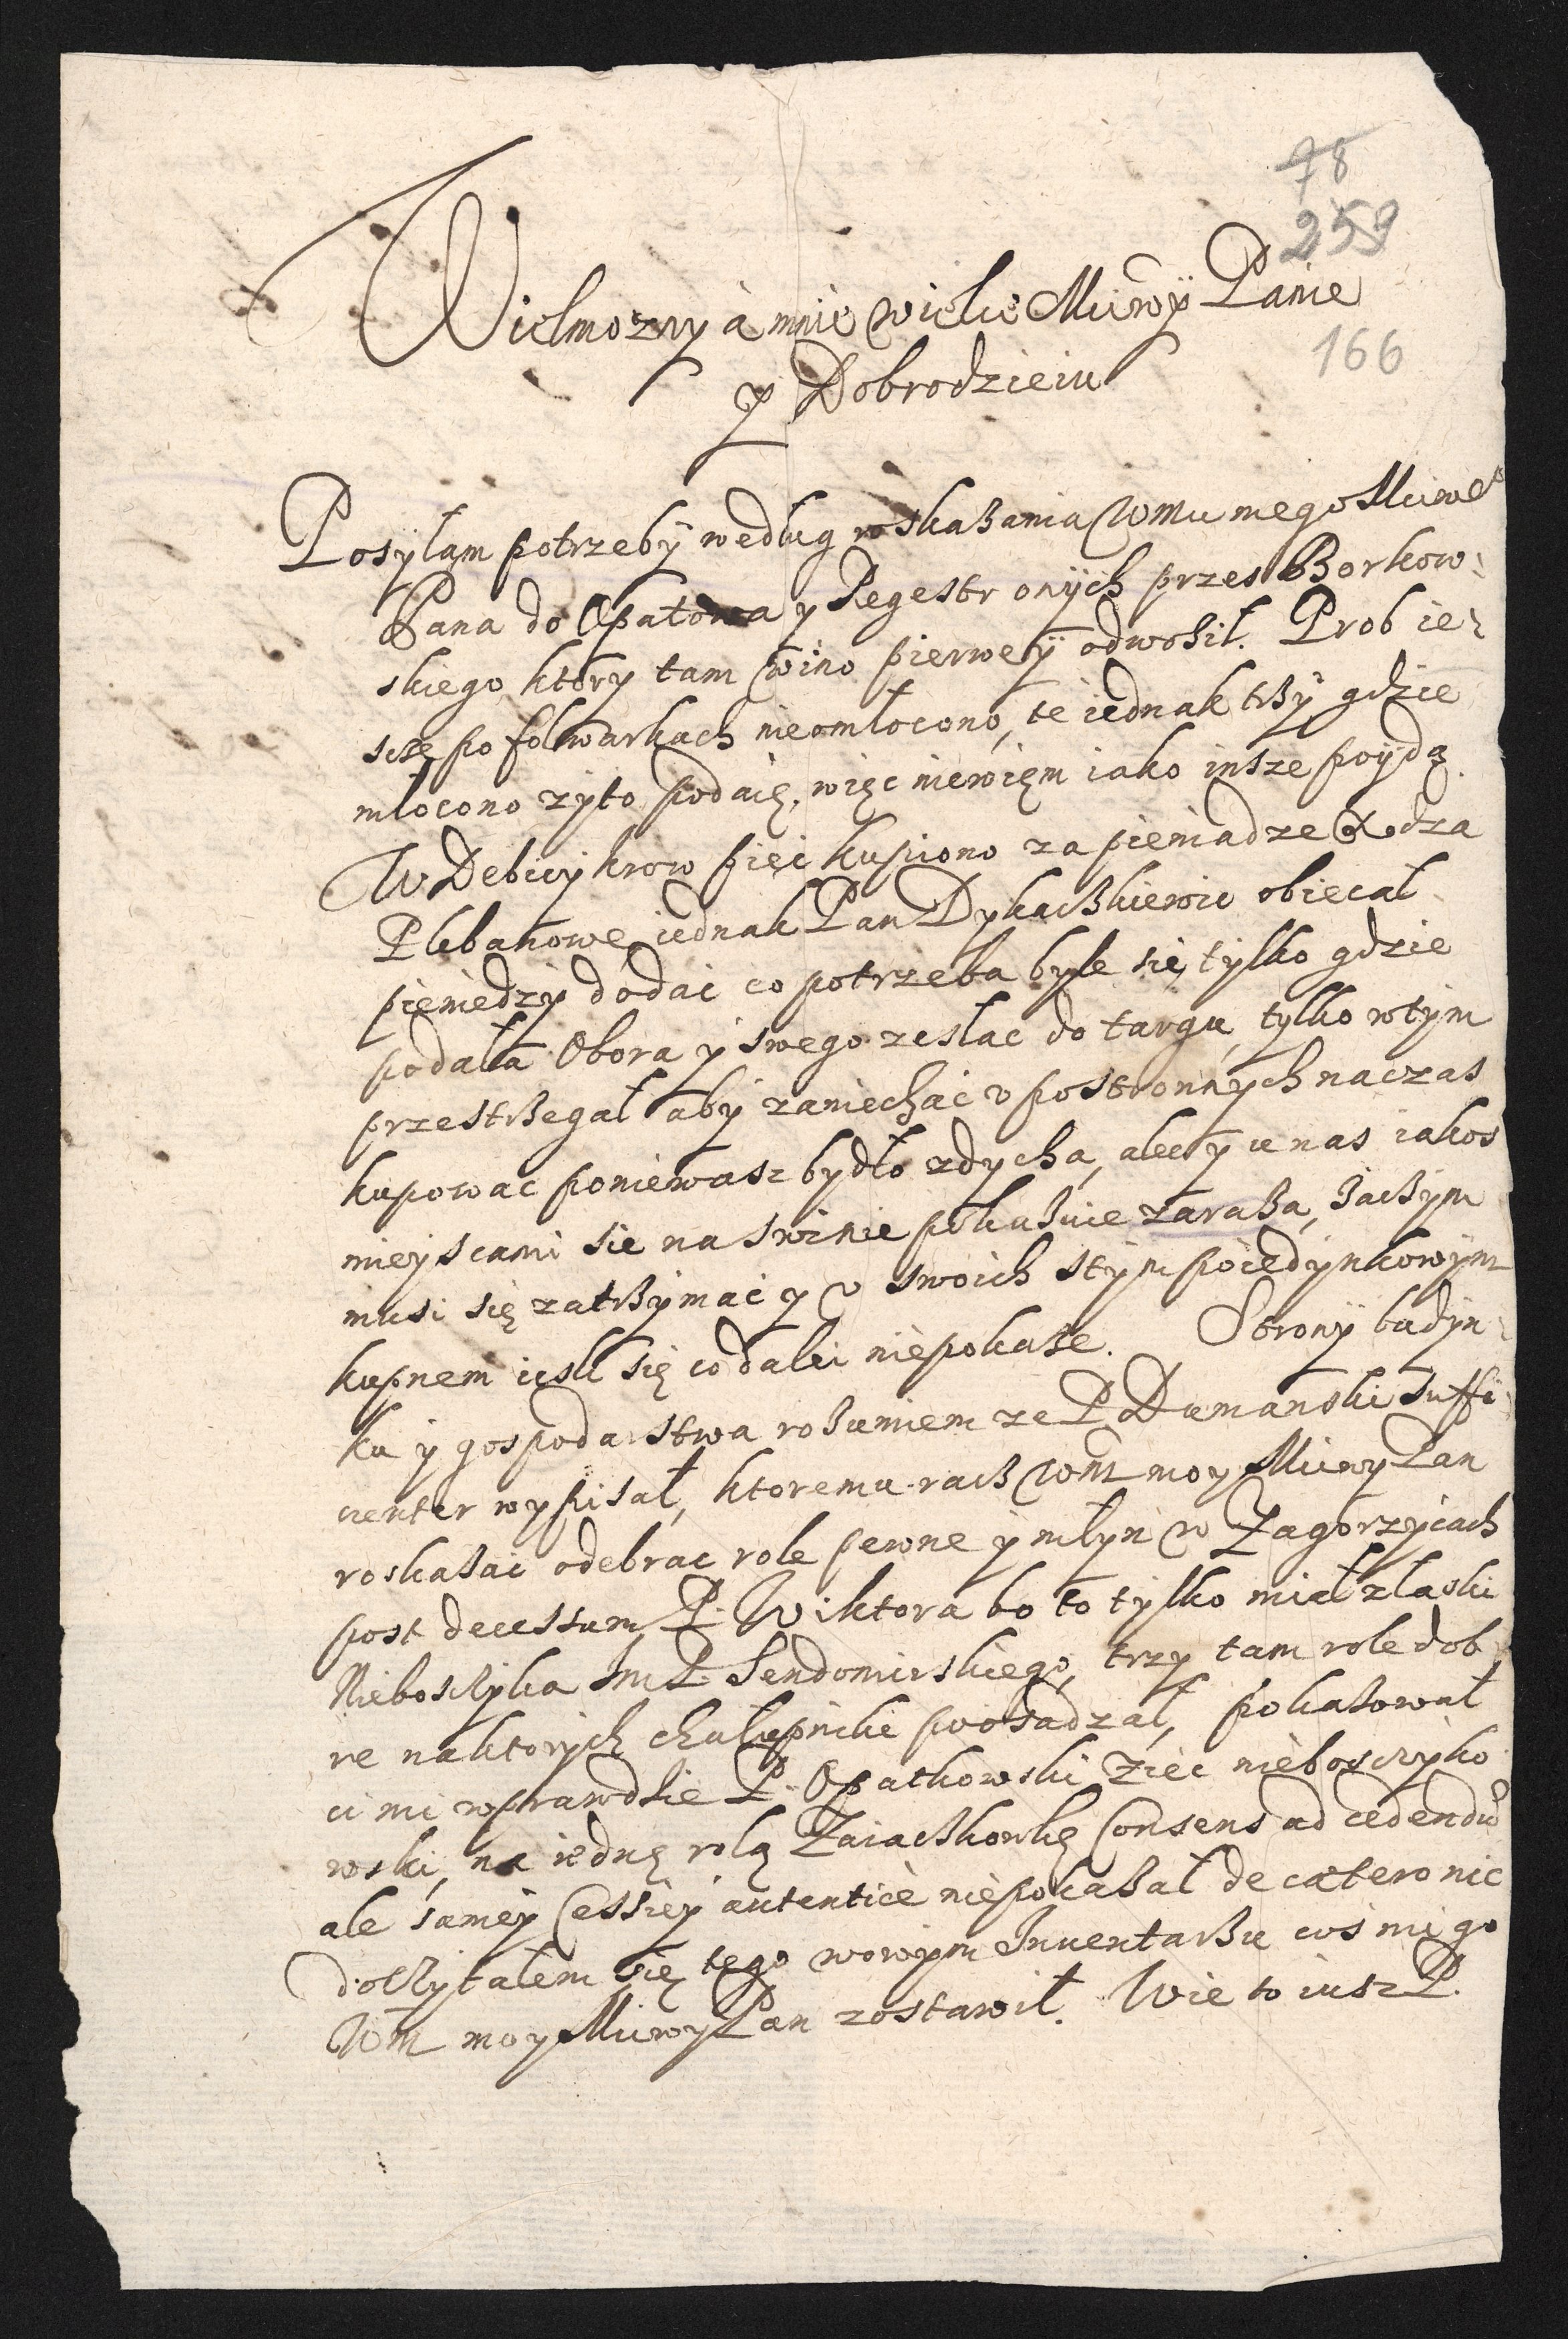 78
259
166
Wielmozny à mnie wielce Miłwÿ Panie
y Dobrodzieiu
Posÿłam potrzebÿ według roskaßania Wmu mego Miłwe°
Pana do Opatowa y Regestr onÿch przes Borkow:
skiego ktory tam wino pierweÿ odwoził. Prob ie:
scze po folwarkach nieomłocono, te iednak tßÿ gdzie
młocono zÿto podaię, więc niewięm iako insze poÿdą.
W Debicy krow pięc kupiono za pieniadze Xdza
Plebanowe iednak Pan Dykaßkiewic obiecał
pieniedzy dodac co potrzeba byle się tylko gdzie
podała Obora y swego zesłac do targu, tylko wtÿm
przestßegał abÿ zaniechac v postronnÿch naczas
kupowac poniewasz bydło zdycha, alec ÿ u nas iakos
mieyscami sie na swinie pokaßuie zaraßa, zaczÿm
musi się zatßÿmac y v swoich stÿm poiedÿnkowÿm
kupnem iesli się co dalei niepokaße. Stronÿ budÿn:
ku ÿ gospodarstwa roßumiem ze P. Dumanski suffi:
cienter wypisał, ktoremu racz Wm moy Miłwy Pan
roskaßac odebrac role pewne ÿ młyn w Zagorzycach
post decessum P. Wiktora bo to tylko miał złaski
Nieboscÿka Im P. Sendomirskiego, trzy tam role dob:
re naktorych chałupniki poosadzał, pokaßował
ci mi wprawdzie P. Opatkowski Zięc nieboscÿko:
wski, na iednę rolą Zaiaczkowkę Consens ad cedendũ
ale sameÿ Cessieÿ autentice niepokaßał de cætero nic
doczÿtałem się tego wowÿm Inuentaßu coś mi go
Wm moy Miłwÿ Pan zostawił. Wie to iusz P.